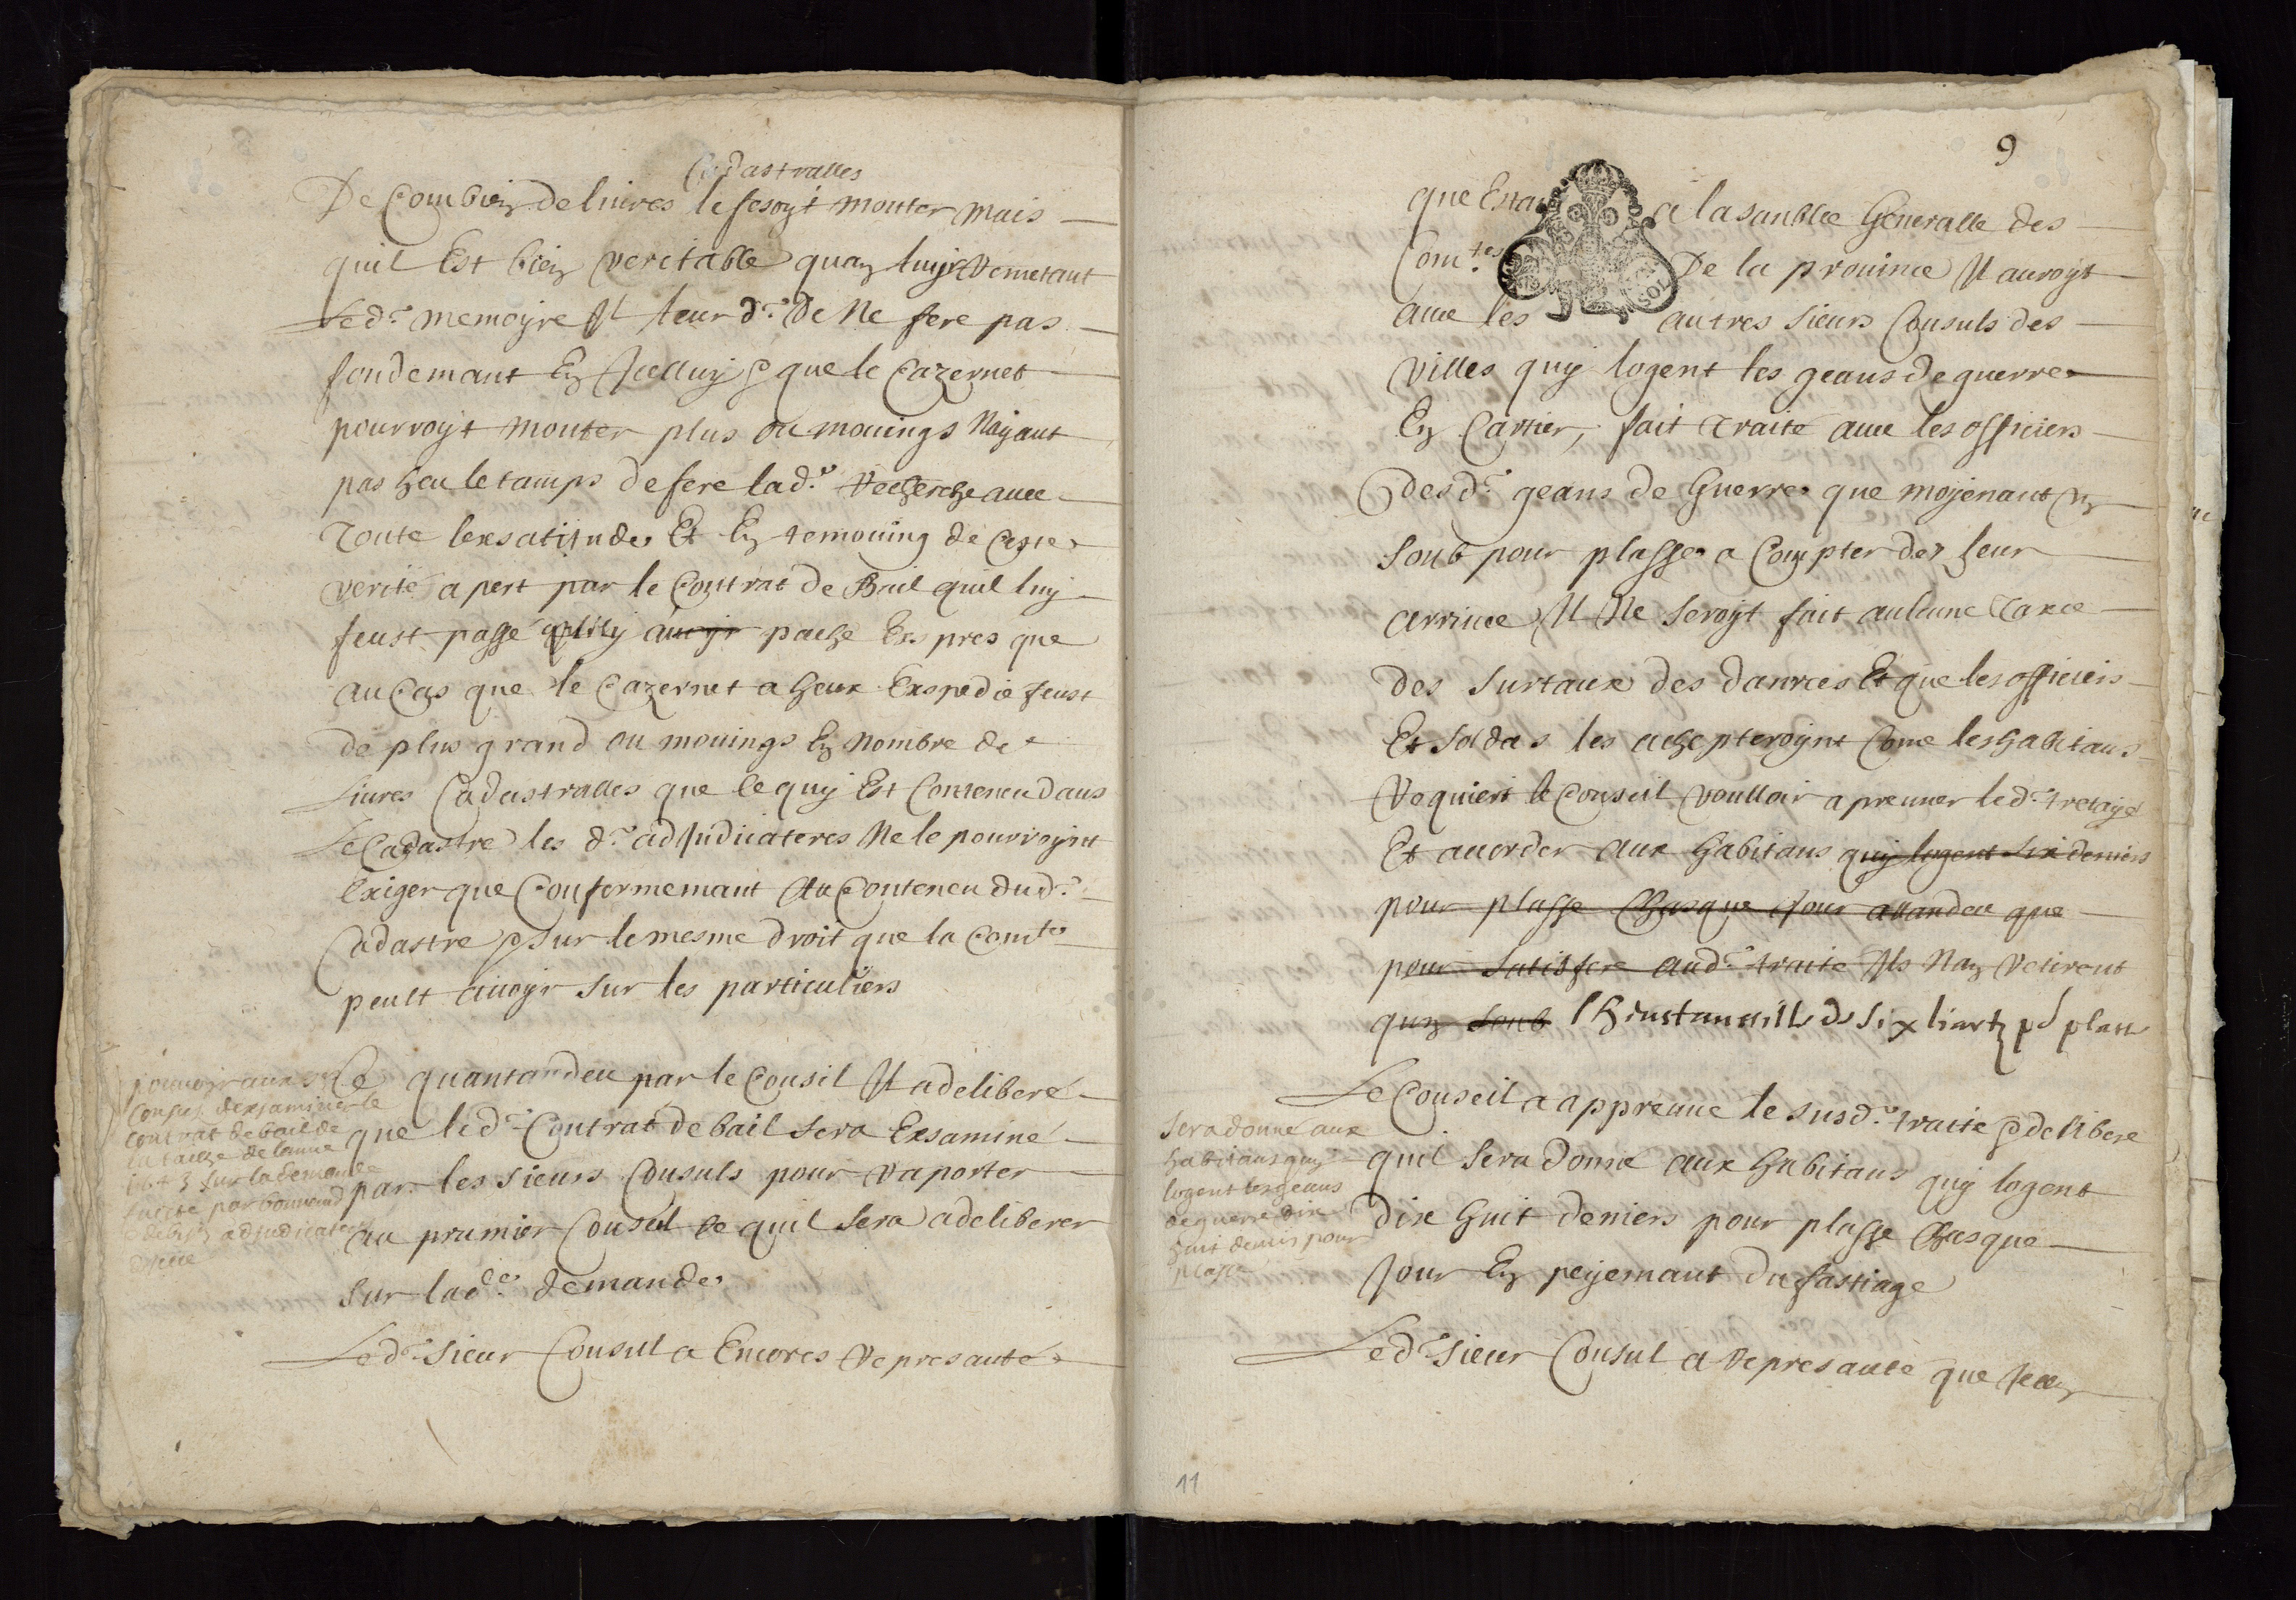 Cadastralles
De Combien de liures le fesoyt monter mais
quil Est bien veritable quan luy remetant
Led.t memoyre Il leur d.t De Ne fere pas
fondemant En Icelluy que le Cazernet
pourroyt monter plus ou mouings Nayant
pas heu le tamps de fere lad.e recherche auec
toute lexsatitude Et En temouing de Ceste
verité apert par le Contrat de Bail quil luy
feust passé auoyr pache Expres que
au Cas que le Cazernet a heux Expedié feust
de plus grand ou mouings En Nombre de
Liures Cadastralles que ce quy Est Conteneu dans
Le Cadastre les d.s adjudicateres Ne le pourroynt
Exiger que Conformemant Au Conteneu dud.t
Cadastre sur le mesme droit que la Com.té
peult auoyr sur les particuliers
pouuoyr aux s.rs
Consuls dexsaminer le
Contrat de bail de
la taille de lanne
sur la demande
faicte par
adjudicatere
Ce quantandeu par le Consil Il a deliberé
que led.t Contrat de bail sera Exsaminé
par les sieurs Consuls pour raporter
au prumier Conseil Ce quil sera a deliberer
sur lad.e demande
Led.t sieur Consul a Encores represanté
9
que Estant a lasanblée Generalle des
Com.tes De la prouince Il auroyt
auec les autres sieurs Consuls des
Villes quy logent les geans de guerre
En Cartier, fait traité auec les officiers
Desd.s geans de Guerre que moyenant un
soub pour plasse a Compter dez leur
arriuée Il Ne seroyt fait aulcune taxe
des surtaux des danrées Et que les officiers
Et soldas les achepteroynt Come les habitans
Requiert le Conseil voulloir apreuuer led.t tretayé
Et acorder aux habitans quy logent six deniers
pour plasse Chasque jour atandeu que
pour satisfere aud.t traité Ils Nan retirent
qun soub lhinstanssille de six liartz pr plasse
Le Conseil a appreuué le susd.t traité deliberé
quil sera donné aux habitans quy logent
dix huit deniers pour plasse Chasque
Jour En peyemant du fastiage
sera donné aux
habitans quy
logent les geans
de guerre dix
huit deniers pour
plasse
Led.t sieur Consul a represanté que
11